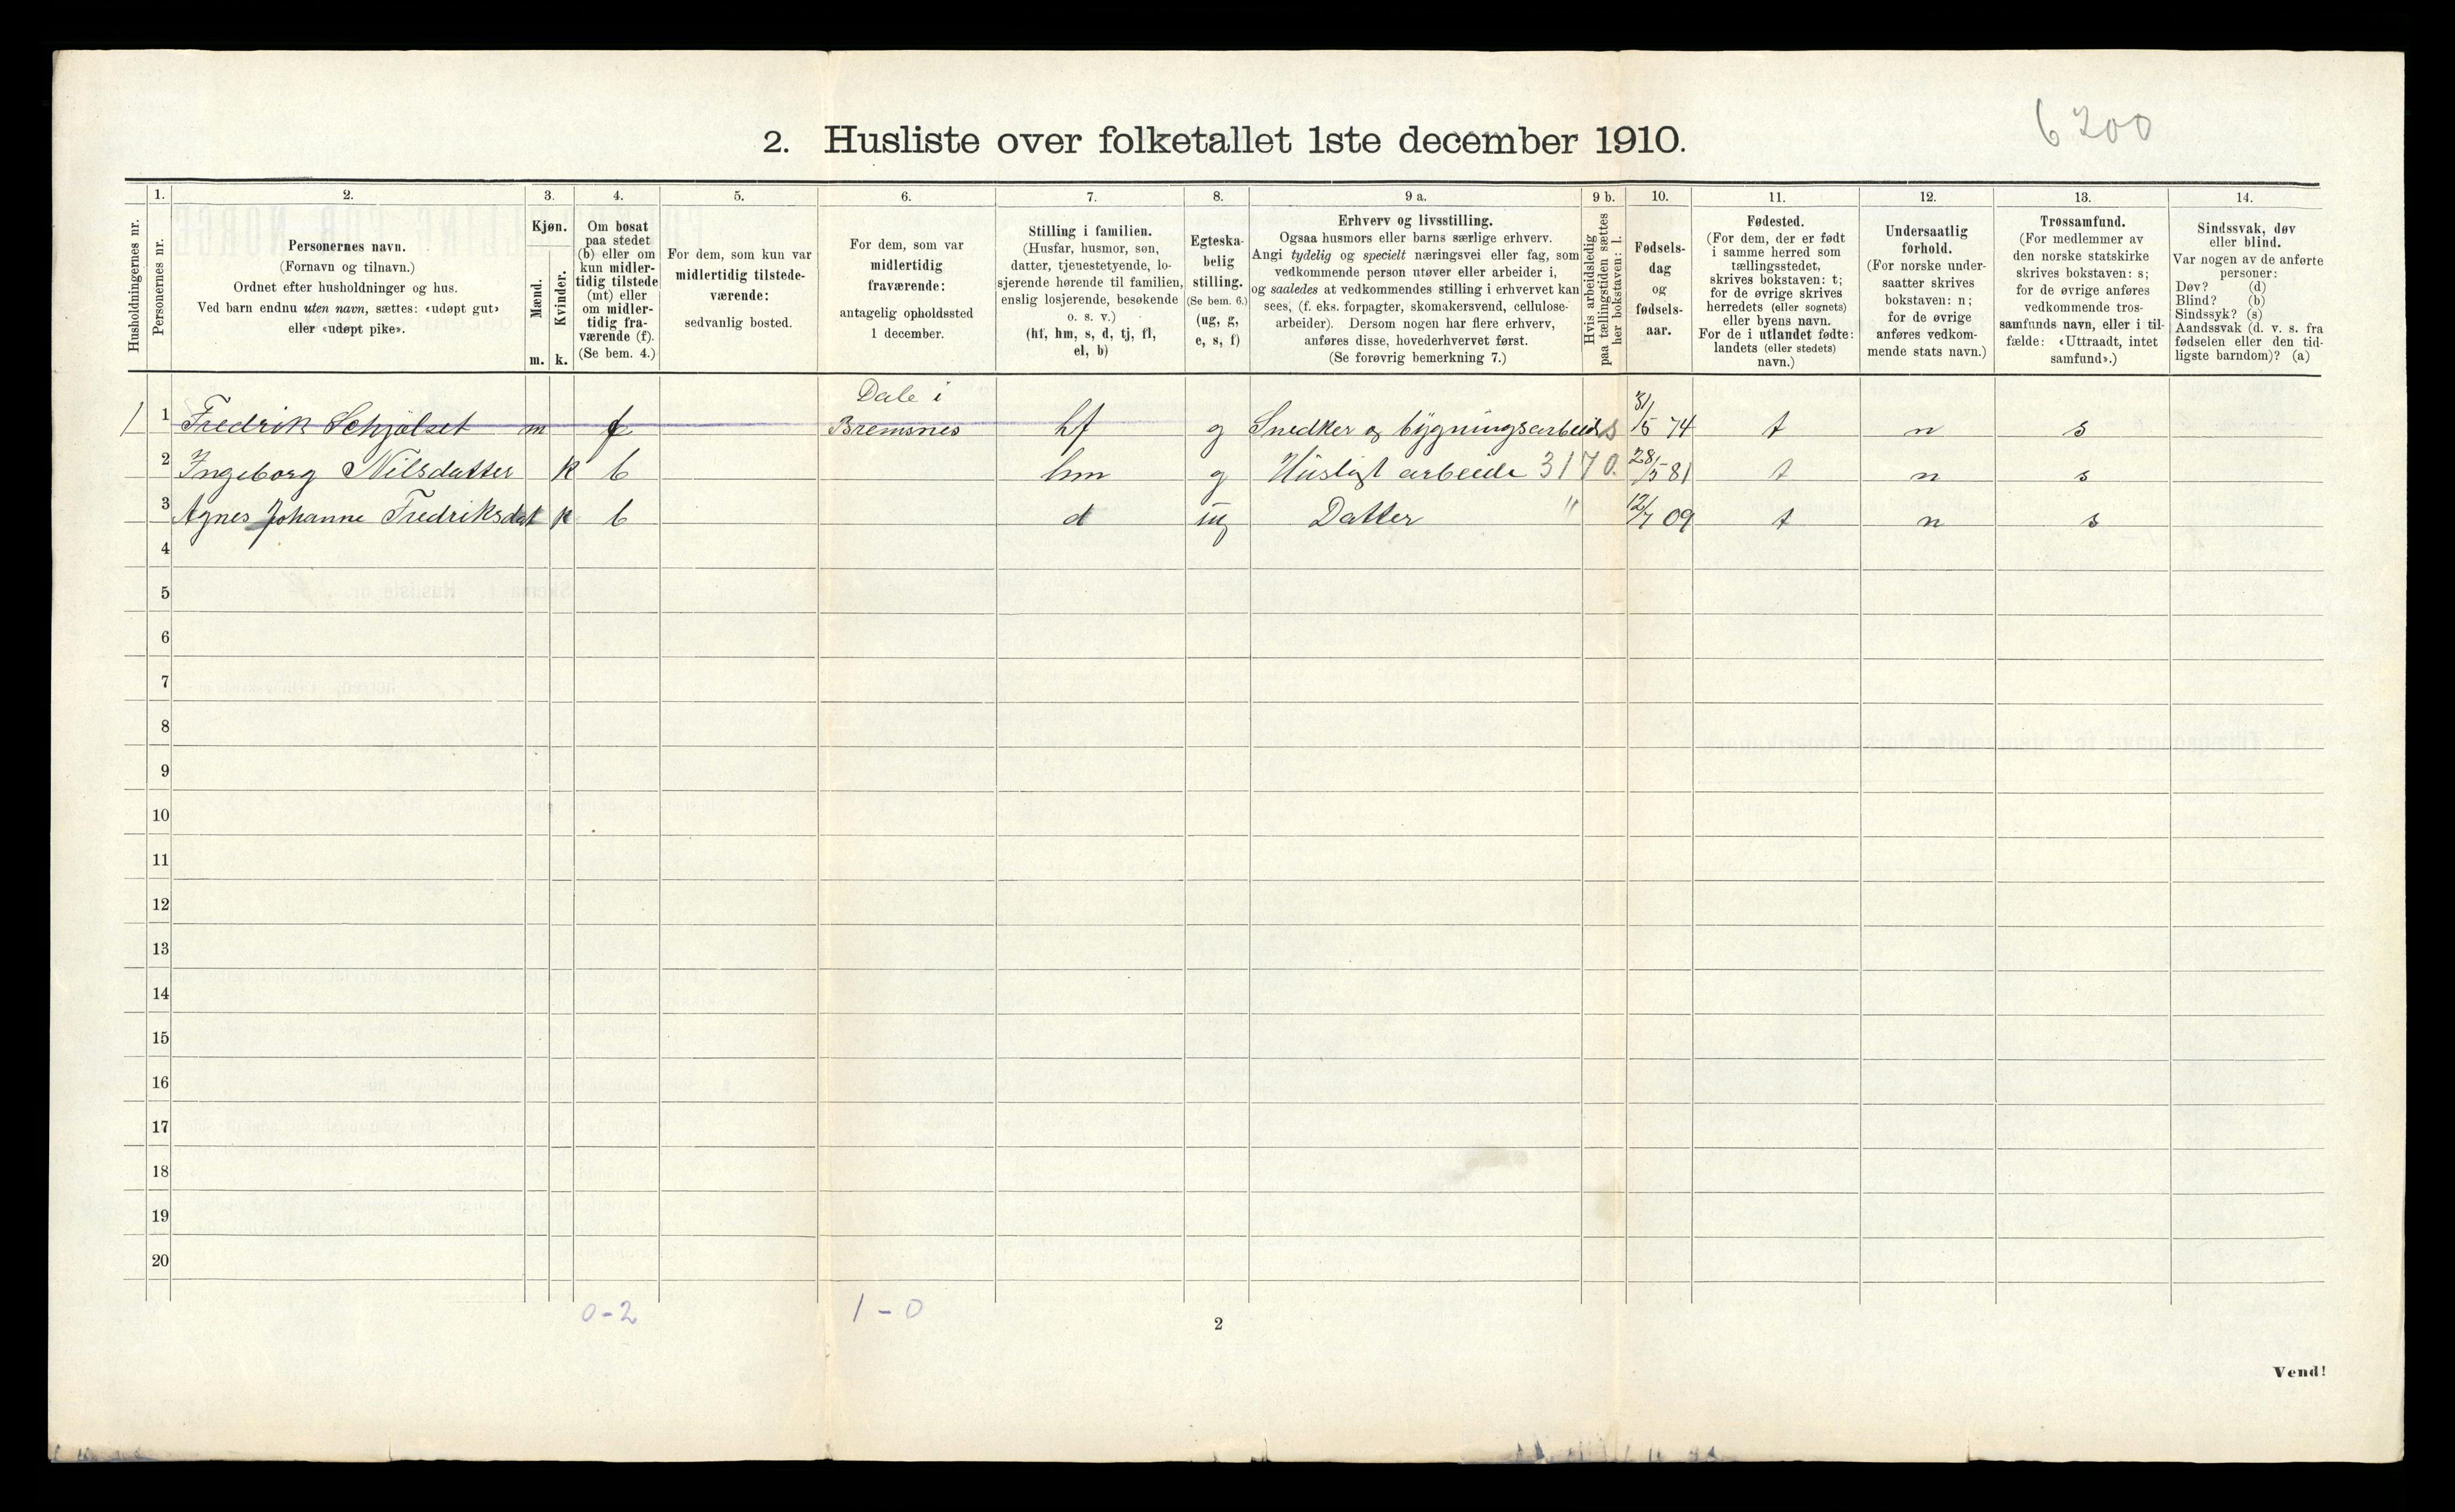 6200
2. Husliste over folketallet 1ste december 1910.
Husholdningernes nr.
1.
Personernes nr.
2.
Personernes navn.
(Fornavn og tilnavn.)
Ordnet efter husholdninger og hus.
Ved barn endnu uten navn, sættes: «udøpt gut»
eller «udøpt pike».
3.
Kjøn.
Mænd.
Kvinder.
m. k.
4.
Om bosat
paa stedet
(b) eller om
kun midler-
tidig tilstede
(mt) eller
om midler-
tidig fra-
værende (f).
(Se bem. 4.)
5.
For dem, som kun var
midlertidig tilstede-
værende:
sedvanlig bosted.
6.
For dem, som var
midlertidig
fraværende:
antagelig opholdssted
1 december.
7.
Stilling i familien.
(Husfar, husmor, søn,
datter, tjenestetyende, lo-
sjerende hørende til familien,
enslig losjerende, besøkende
o. s. v.)
(hf, hm, s, d, tj, fl,
el, b)
8.
Egteska-
belig
stilling.
(Se bem. 6.)
(ug, g,
e, s, f)
9 a.
Erhverv og livsstilling.
Ogsaa husmors eller barns særlige erhverv.
Angi tydelig og specielt næringsvei eller fag, som
vedkommende person utøver eller arbeider i,
og saaledes at vedkommendes stilling i erhvervet kan
sees, (f. eks. forpagter, skomakersvend, cellulose-
arbeider). Dersom nogen har flere erhverv,
anføres disse, hovederhvervet først.
(Se forøvrig bemerkning 7.)
9 b.
Hvis arbeidsledig
paa tællingstiden sættes
her bokstaven: l.
10.
Fødsels-
dag
og
fødsels-
aar.
11.
Fødested.
(For dem, der er født
i samme herred som
tællingsstedet,
skrives bokstaven: t;
for de øvrige skrives
herredets (eller sognets)
eller byens navn.
For de i utlandet fødte:
landets (eller stedets)
navn.)
12.
Undersaatlig
forhold.
(For norske under-
saatter skrives
bokstaven: n;
for de øvrige
anføres vedkom-
mende stats navn.)
13.
Trossamfund.
(For medlemmer av
den norske statskirke
skrives bokstaven: s;
for de øvrige anføres
vedkommende tros-
samfunds navn, eller i til-
fælde: «Uttraadt, intet
samfund».)
14.
Sindssvak, døv
eller blind.
Var nogen av de anførte
personer:
Døv? (d)
Blind? (b)
Sindssyk? (s)
Aandssvak (d. v. s. fra
fødselen eller den tid-
ligste barndom)? (a)
1 1 Fredrik Schjølset m f Dale i Bremsnes hf g Snedker og bygningsarbeid s 31/5 74 t n s
2 Ingeborg Nilsdatter k b hm g Husligt arbeide 3170. 28/5 81 t n s
3 Agnes Johanne Fredriksdat k b d ug Datter " 12/7 09 t n s
4
5
6
7
8
9
10
11
12
13
14
15
16
17
18
19
20
0-2 1-0
2
Vend!